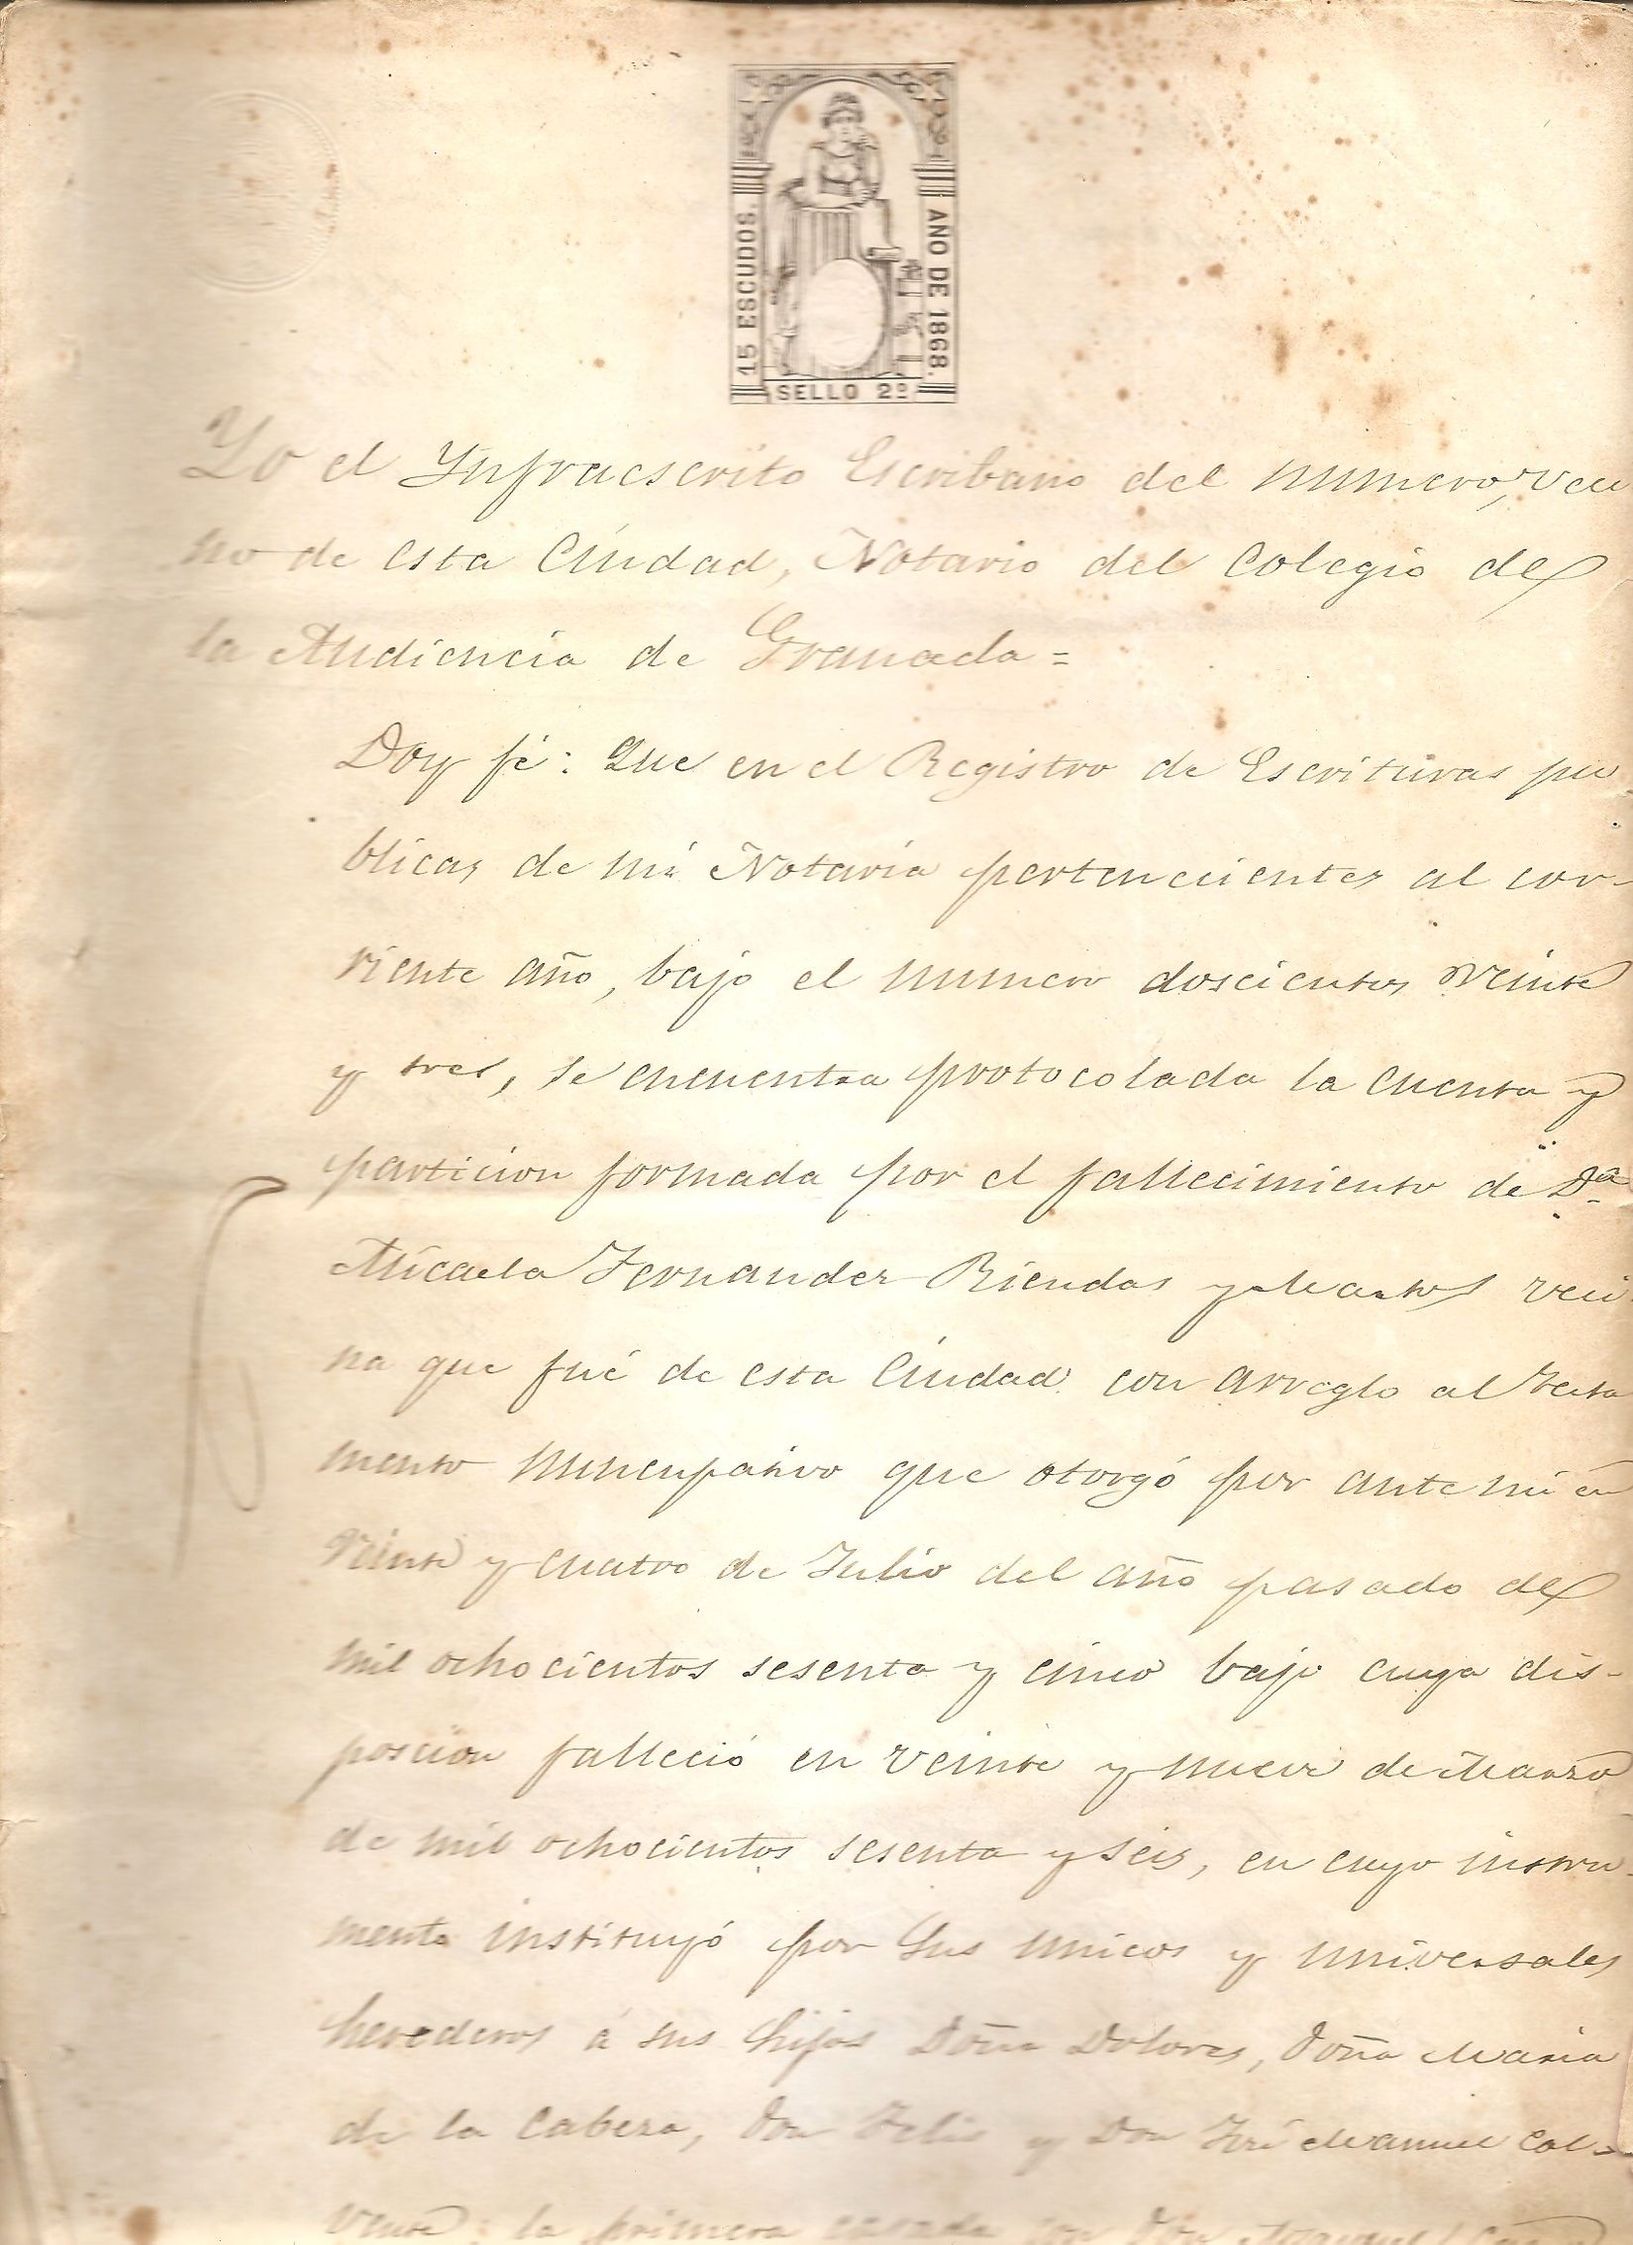 15 ESCUDOS.
AÑO DE 1868.
SELLO 2º
Yo el Ynfraescrito Escribano del numero, veci
no de esta Ciudad, Notario del Colegio de
la Audiencia de Granada=
Doy fé: Que en el Registro de Escrituras pu
blicas de mi Notaría pertenecientes al cor-
riente año, bajo el numero doscientos veinte
y tres, se encuentra protocolada la cuenta y
particion formada por el fallecimiento de Dª
Micaela Fernandez Riendas y Martos veci
na que fué de esta Ciudad. con arreglo al Testa
mento nuncupativo que otorgó por ante mi en
veinte y cuatro de Julio del año pasado de
mil ochocientos sesenta y cinco bajo cuya dis-
poscion falleció en veinte y nueve de Marzo
de mil ochocientos sesenta y seis, en cuyo instru-
mento instituyó por sus unicos y universales
herederos á sus hijos Doña Dolores, Doña Maria
de la Cabeza, Don Felis y Don José Manuel Cal-
vente: la primera casada con Don Manuel